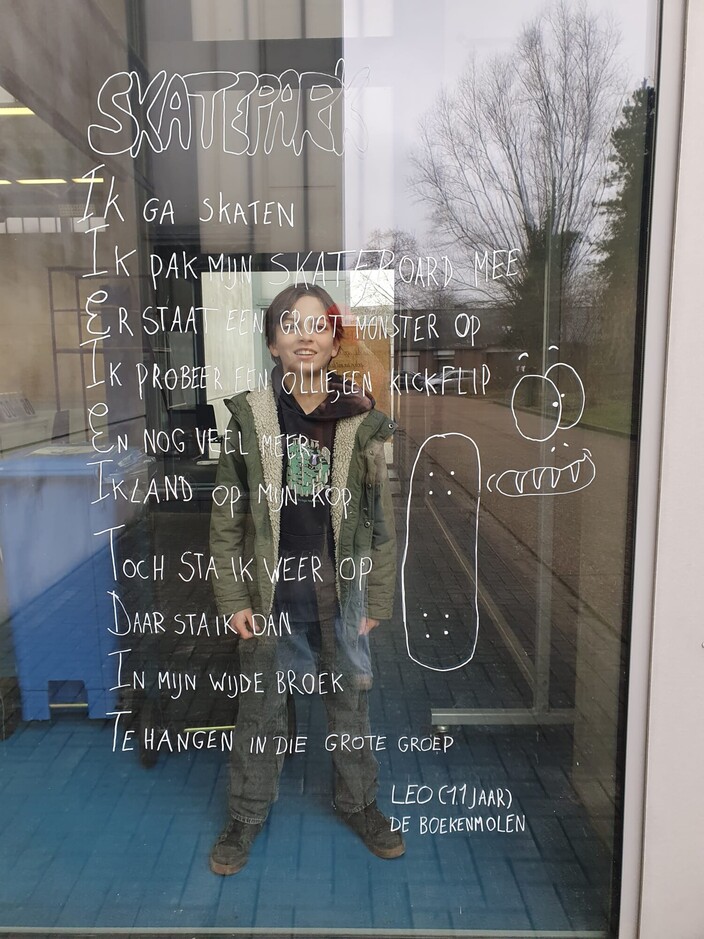 SKATEPARK
IK GA SKATEN
IK PAK MIJN SKATEBOARD MEE
ER STAAT EEN GROOT MONSTER OP
IK PROBEER EEN OLLIE, EEN KICKFLIP
EN NOG VEEL MEER
IK LAND OP MIJN KOP
TOCH STA IK WEER OP
DAAR STA IK DAN
IN MIJN WIJDE BROEK
TE HANGEN IN DIE GROTE GROEP
LEO (11 JAAR)
DE BOEKENMOLEN